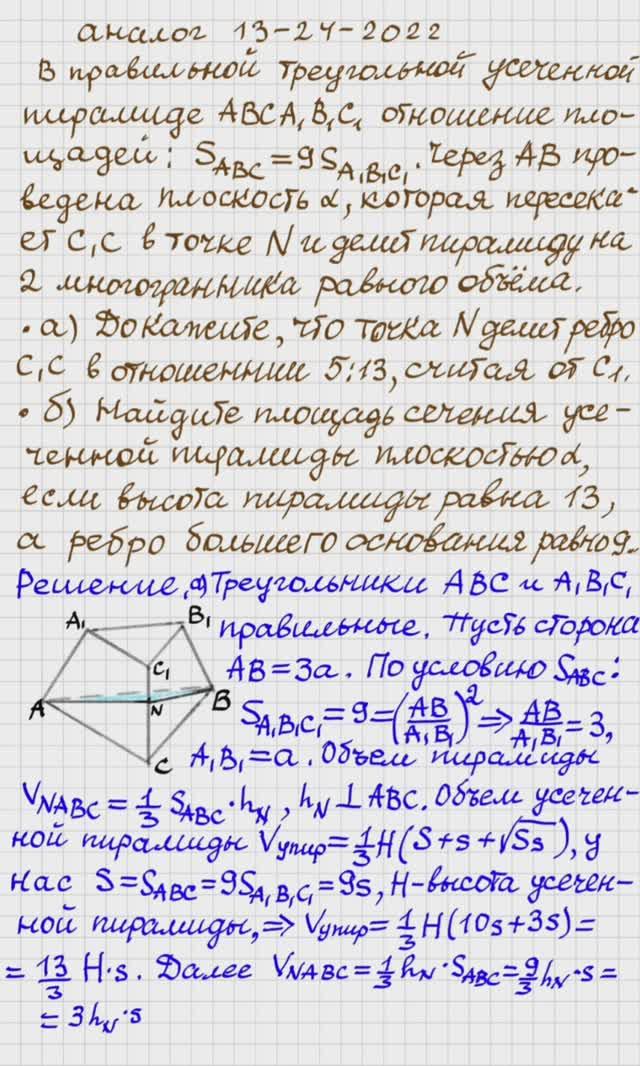 аналог 13-24-2022
В правильной треугольной усеченной
пирамиде ABCA₁B₁C₁ отношение пло-
щадей: S_ABC = 9S_A₁B₁C₁. Через AB про-
ведена плоскость α, которая пересека-
ет C₁C в точке N и делит пирамиду на
2 многогранника равного объёма.
• а) Докажите, что точка N делит ребро
C₁C в отношении 5:13, считая от C₁.
• б) Найдите площадь сечения усе-
ченной пирамиды плоскостью α,
если высота пирамиды равна 13,
а ребро большего основания равно 9.
Решение, а) Треугольники ABC и A₁B₁C₁
A₁ B₁ правильные. Пусть сторона
C₁ AB = 3a. По условию S_ABC :
A N B S_A₁B₁C₁ = 9 = (AB/A₁B₁)² ⇒ AB/A₁B₁ = 3,
C A₁B₁ = a. Объем пирамиды
V_NABC = 1/3 S_ABC · h_N, h_N ⊥ ABC. Объем усечен-
ной пирамиды V_упир = 1/3 H(S + s + √Ss), у
нас S = S_ABC = 9S_A₁B₁C₁ = 9s, H - высота усечен-
ной пирамиды, ⇒ V_упир = 1/3 H(10s + 3s) =
= 13/3 H·s. Далее V_NABC = 1/3 h_N · S_ABC = 9/3 h_N · s =
= 3h_N · s